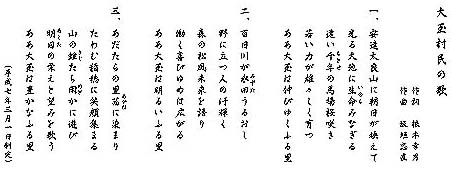 大玉村民の歌
作詞 根本幸男
作曲 坂垣忠直
一、安達太良山に朝日が映えて
光る大地に生命みなぎる
遠い千年の馬場桜咲き
若い力が雄々しく育つ
ああ大玉は伸びゆくふる里
二、百日川が水田うるおし
野に立つ人の汗輝く
森の松風未来を語り
働く喜びゆめは広がる
ああ大玉は明るいふる里
三、あだたらの里茜に染まり
たわむ稲穂に笑顔集まる
山の雉たち闊かに遊び
明日の栄えと望みを歌う
ああ大玉は豊かなふる里
(平成七年三月一日制定)